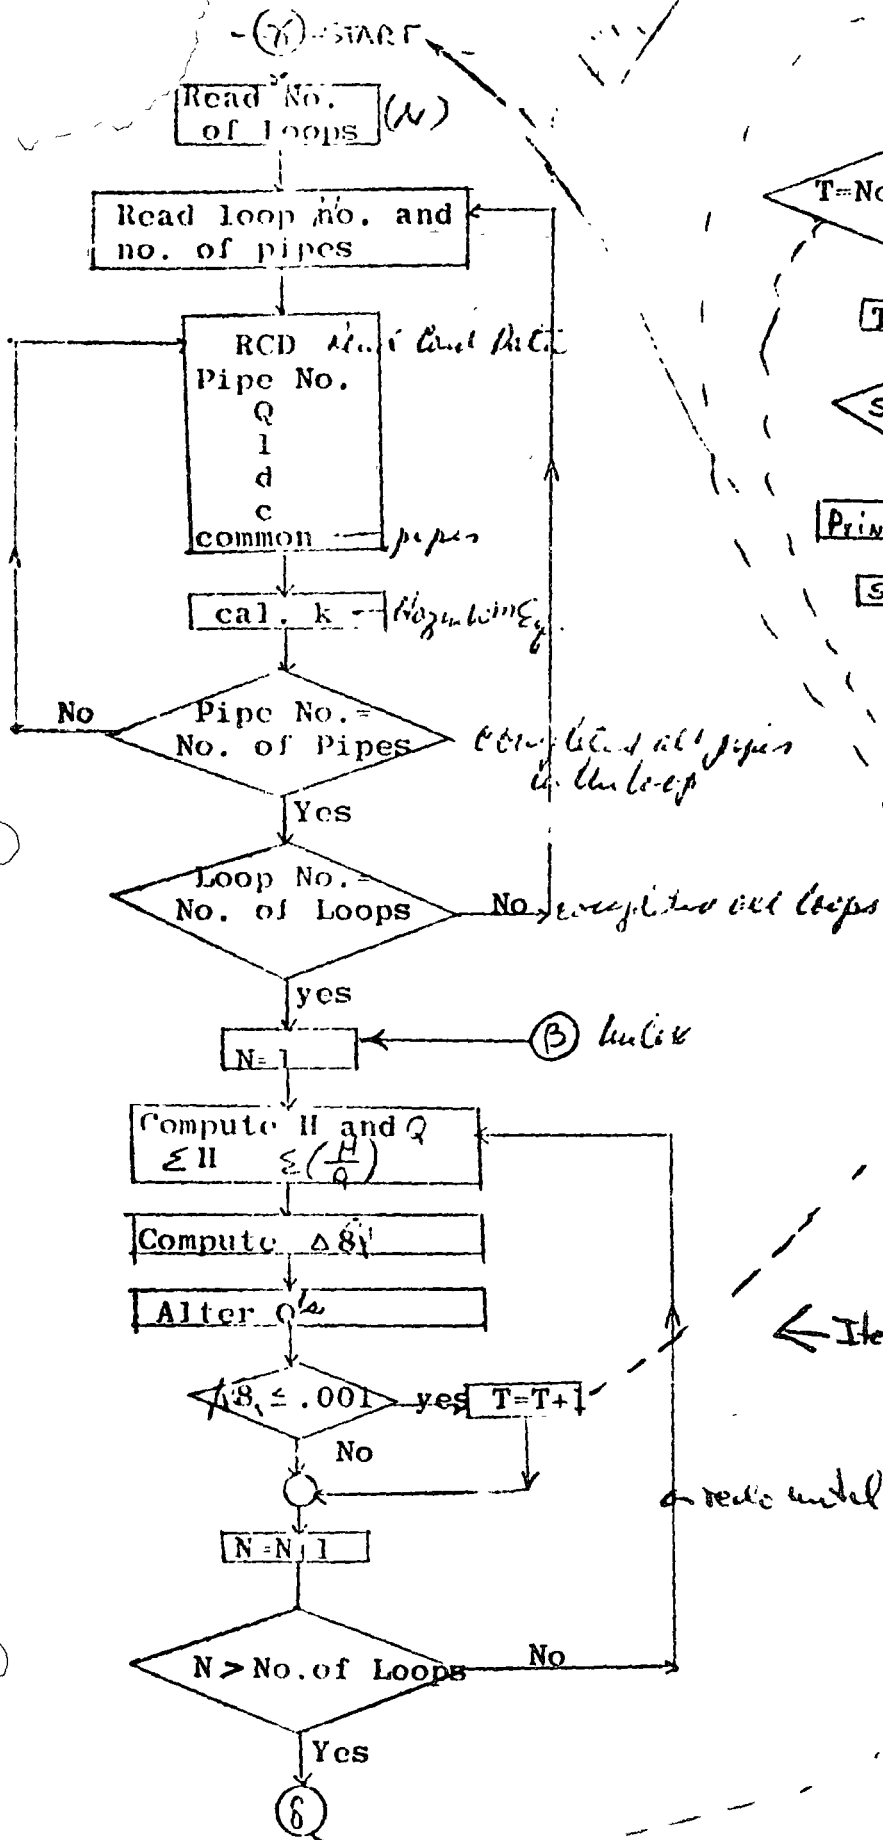 START
Read No.
of Loops (N)
Read loop No. and
no. of pipes
T=No
RCD
Pipe No.
Q
l
d
c
common pipes
Prin
cal. k
No
Pipe No.=
No. of Pipes
completed all pipes
in the loop
Yes
Loop No.=
No. of Loops
No
completed all loops
yes
N=1
β
Compute H and Q
ΣH Σ(H/Q)
Compute Δ
Alter Q's
≤ .001
yes
T=T+1
Ite
No
redo until
N=N+1
N > No. of Loops
No
Yes
δ